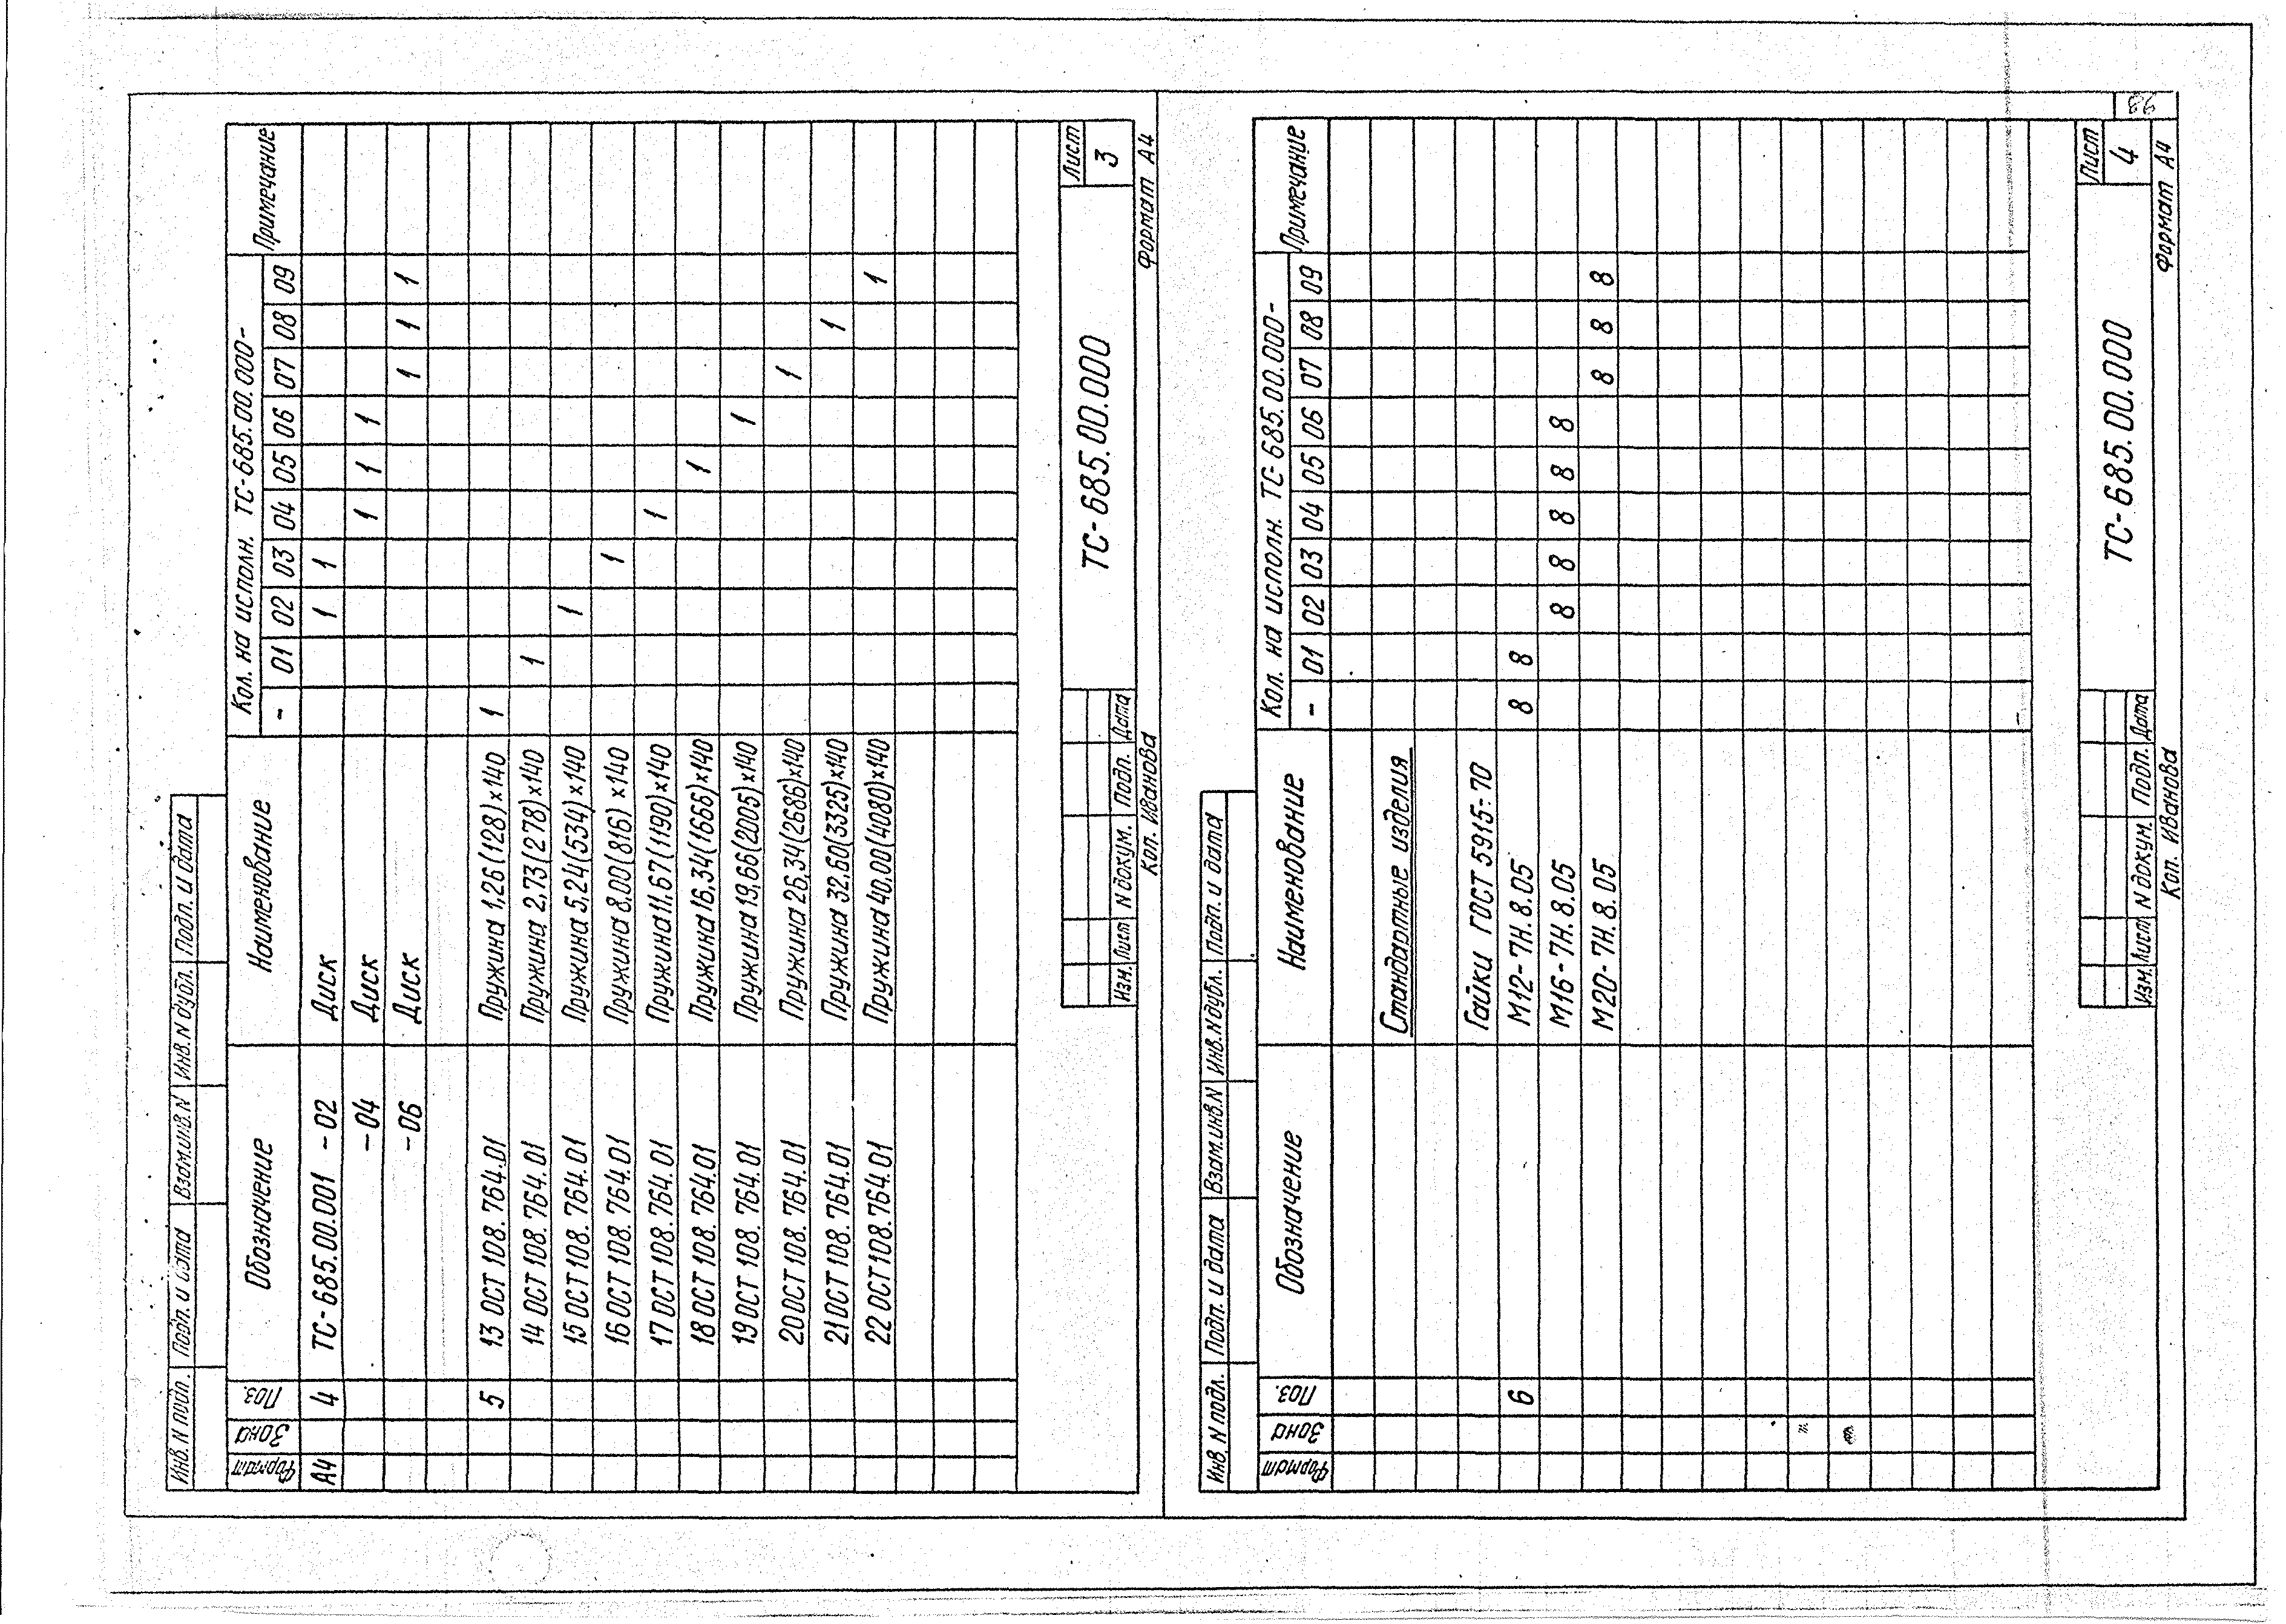 Инв. N подл. Подп. и дата Взам.инв.N Инв.N дубл. Подп. и дата
Формат Зона Поз. Обозначение Наименование Кол. на исполн. ТС-685.00.000- Примечание
- 01 02 03 04 05 06 07 08 09
А4 4 ТС-685.00.001 -02 Диск 1 1
-04 Диск 1 1 1
-06 Диск 1 1 1
5 13 ОСТ 108.764.01 Пружина 1,26(128)×140 1
14 ОСТ 108.764.01 Пружина 2,73(278)×140 1
15 ОСТ 108.764.01 Пружина 5,24(534)×140 1
16 ОСТ 108.764.01 Пружина 8,00(816)×140 1
17 ОСТ 108.764.01 Пружина 11,67(1190)×140 1
18 ОСТ 108.764.01 Пружина 16,34(1666)×140 1
19 ОСТ 108.764.01 Пружина 19,66(2005)×140 1
20 ОСТ 108.764.01 Пружина 26,34(2686)×140 1
21 ОСТ 108.764.01 Пружина 32,60(3325)×140 1
22 ОСТ 108.764.01 Пружина 40,00(4080)×140 1
Изм. Лист N докум. Подп. Дата
ТС-685.00.000
Лист
3
Коп. Иванова Формат А4
Инв. N подл. Подп. и дата Взам.инв.N Инв.N дубл. Подп. и дата
Формат Зона Поз. Обозначение Наименование Кол. на исполн. ТС-685.00.000- Примечание
- 01 02 03 04 05 06 07 08 09
Стандартные изделия
Гайки ГОСТ 5915-70
6 М12-7Н.8.05 8 8
М16-7Н.8.05 8 8 8 8 8
М20-7Н.8.05 8 8 8
Изм. Лист N докум. Подп. Дата
ТС-685.00.000
Лист
4
Коп. Иванова Формат А4
98